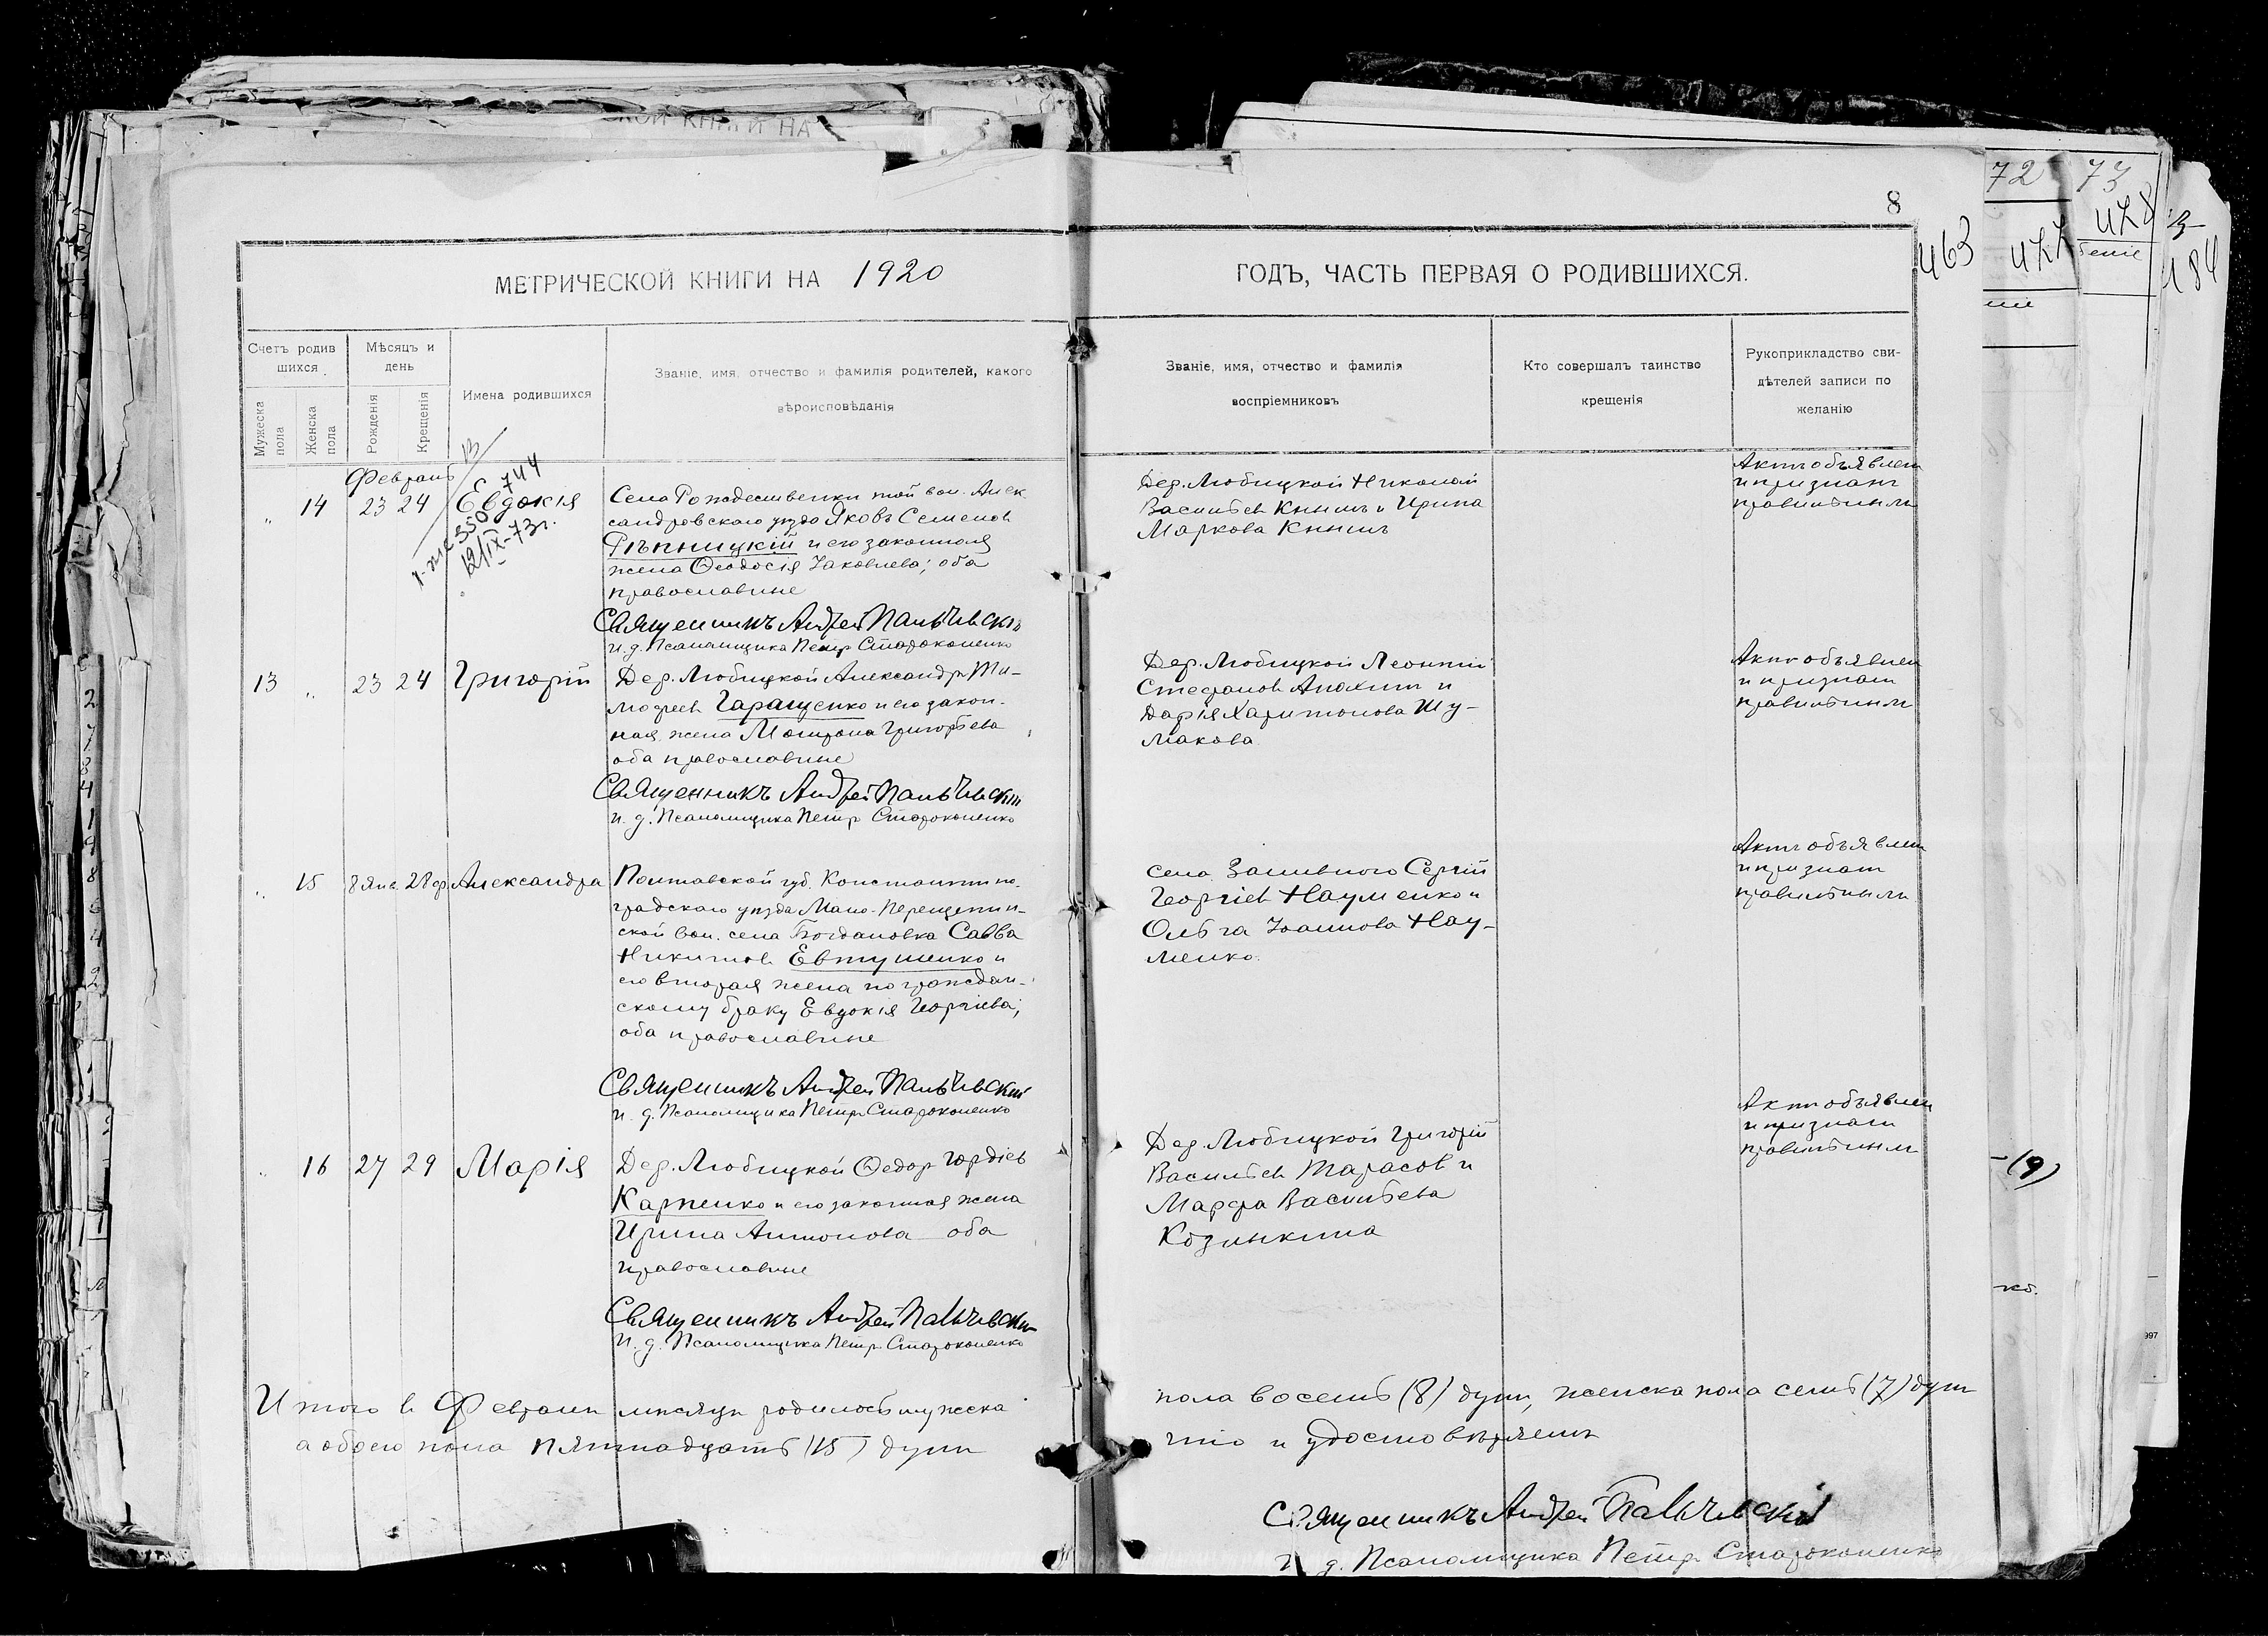 СКОЙ КНИГИ НА
8
463
72
73
477
478
184
МЕТРИЧЕСКОЙ КНИГИ НА 1920
ГОДЪ, ЧАСТЬ ПЕРВАЯ О РОДИВШИХСЯ.
Счетъ родив
шихся.
Мужеска пола
Женска пола
Мѣсяцъ и
день
Рожденія
Крещенія
Имена родившихся
Званіе, имя, отчество и фамилія родителей, какого
вѣроисповѣданія
Званіе, имя, отчество и фамилія
воспріемниковъ
Кто совершалъ таинство
крещенія
Рукоприкладство сви-
дѣтелей записи по
желанію
Февраль
14 23 24 Евдокія
744
12/IX-73г.
Села Рождественки той вол. Алек
сандровскаго уѣзда Яковъ Семенов
Рѣпницкій и его законная
жена Ѳеодосія Іаковлева; оба
православные
Священникъ Андрей Пальчевскій
и. д. Псаломщика Петр Староконенко
Дер. Любицкой Николай
Васильев Книшъ и Ирина
Маркова Книшъ
Актъ объявлен
и признан
правильным
13 " 23 24 Григорій
Дер. Любицкой Александр Ти-
мофеев Гаращенко и его закон-
ная жена Матрона Григорьева
оба православные
Священникъ Андрей Пальчевскій
и. д. Псаломщика Петр Староконенко
Дер. Любицкой Леонтій
Стефанов Анохин и
Дарія Харитонова Шу-
макова
Актъ объявлен
и признан
правильным
15 8 янв. 28 ф Александра
Полтавской губ. Константино-
градскаго уѣзда Мало-Перещепин-
ской вол. села Богдановка Савва
Никитов Евтушенко и
его вторая жена по граждан-
скому браку Евдокія Георгіева;
оба православные
Священникъ Андрей Пальчевскій
и. д. Псаломщика Петр Староконенко
села Заливного Сергій
Георгіев Науменко и
Ольга Іоаннова Нау-
менко.
Актъ объявлен
и признан
правильным
16 27 29 Марія
Дер. Любицкой Ѳедор Гордіев
Карпенко и его законная жена
Ирина Антонова оба
православные
Священникъ Андрей Пальчевскій
И. д. Псаломщика Петр Староконенко
Дер. Любицкой Григорій
Васильев Тарасов и
Марфа Васильева
Козинкина
Актъ объявлен
и признан
правильным
Итого в Феврале месяце родилось мужска
пола восемь (8) душ, женска пола семь (7) душ
а обоего пола пятнадцать (15) душ
что и удостовѣряем
Священникъ Андрей Пальчевскій
и д. Псаломщика Петр Староконенко